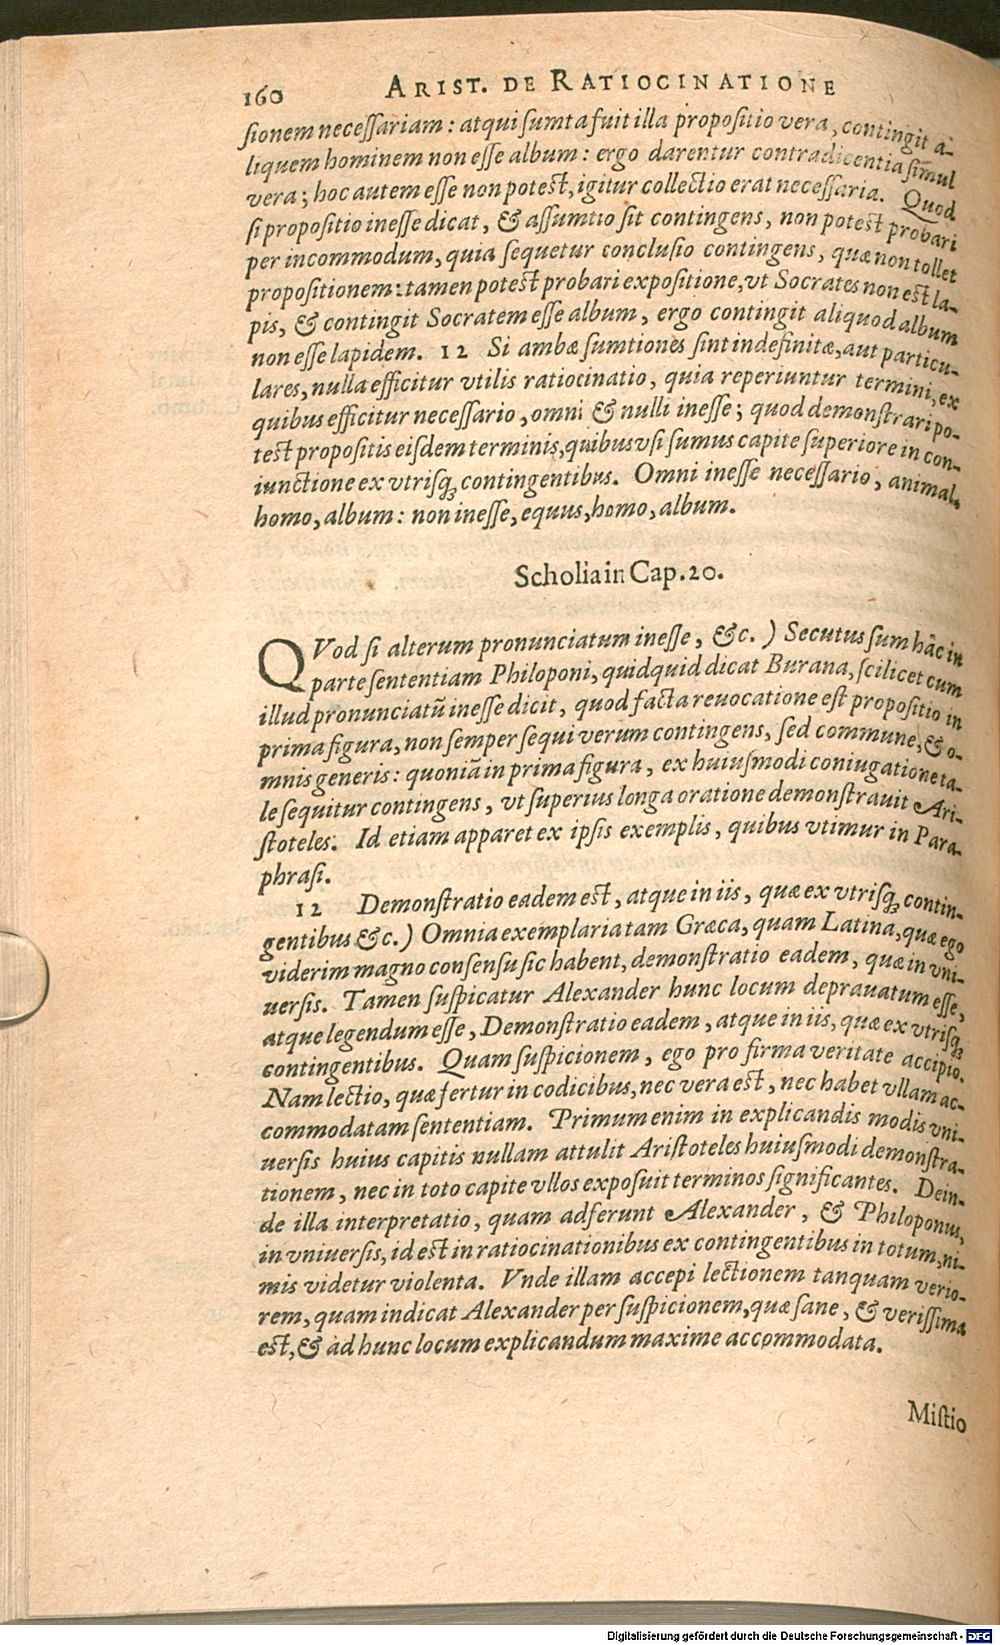 160 ARIST. DE RATIOCINATIONE
ſionem neceſſariam: atqui ſumta fuit illa propoſitio vera, contingit a-
liquem hominem non eſſe album: ergo darentur contradicentia ſimul
vera; hoc autem eſſe non poteſt, igitur collectio erat neceſſaria. Quod
ſi propoſitio ineſſe dicat, & aſſumtio ſit contingens, non poteſt probari
per incommodum, quia ſequetur concluſio contingens, quæ non tollet
propoſitionem: tamen poteſt probari expoſitione, vt Socrates non eſt la-
pis, & contingit Socratem eſſe album, ergo contingit aliquod album
non eſſe lapidem. 12 Si ambæ ſumtiones ſint indefinitæ, aut particu-
lares, nulla efficitur vtilis ratiocinatio, quia reperiuntur termini, ex
quibus efficitur neceſſario, omni & nulli ineſſe; quod demonſtrari po-
teſt propoſitis eiſdem terminis, quibus vſi ſumus capite ſuperiore in con-
iunctione ex vtriſq; contingentibus. Omni ineſſe neceſſario, animal,
homo, album: non ineſſe, equus, homo, album.
Scholia in Cap. 20.
QVod ſi alterum pronunciatum ineſſe, &c.) Secutus ſum hâc in
parte ſententiam Philoponi, quidquid dicat Burana, ſcilicet cum
illud pronunciatū ineſſe dicit, quod facta reuocatione eſt propoſitio in
prima figura, non ſemper ſequi verum contingens, ſed commune, & o-
mnis generis: quoniā in prima figura, ex huiuſmodi coniugatione ta-
le ſequitur contingens, vt ſuperius longa oratione demonſtrauit Ari-
ſtoteles. Id etiam apparet ex ipſis exemplis, quibus vtimur in Para-
phraſi.
12 Demonſtratio eadem eſt, atque in iis, quæ ex vtriſq; contin-
gentibus &c.) Omnia exemplaria tam Græca, quam Latina, quæ ego
viderim magno conſenſu ſic habent, demonſtratio eadem, quæ in vni-
uerſis. Tamen ſuſpicatur Alexander hunc locum deprauatum eſſe,
atque legendum eſſe, Demonſtratio eadem, atque in iis, quæ ex vtriſq;
contingentibus. Quam ſuſpicionem, ego pro firma veritate accipio.
Nam lectio, quæ fertur in codicibus, nec vera eſt, nec habet vllam ac-
commodatam ſententiam. Primum enim in explicandis modis vni-
uerſis huius capitis nullam attulit Ariſtoteles huiuſmodi demonſtra-
tionem, nec in toto capite vllos expoſuit terminos ſignificantes. Dein-
de illa interpretatio, quam adferunt Alexander, & Philoponus,
in vniuerſis, id eſt in ratiocinationibus ex contingentibus in totum, ni-
mis videtur violenta. Vnde illam accepi lectionem tanquam verio-
rem, quam indicat Alexander per ſuſpicionem, quæ ſane, & veriſſima
eſt, & ad hunc locum explicandum maxime accommodata.
Miſtio
Digitalisierung gefördert durch die Deutsche Forschungsgemeinschaft - DFG